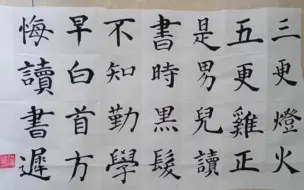 三更燈火
五更雞正
是男兒讀
書時黑髮
不知勤學
早白首方
悔讀書遲